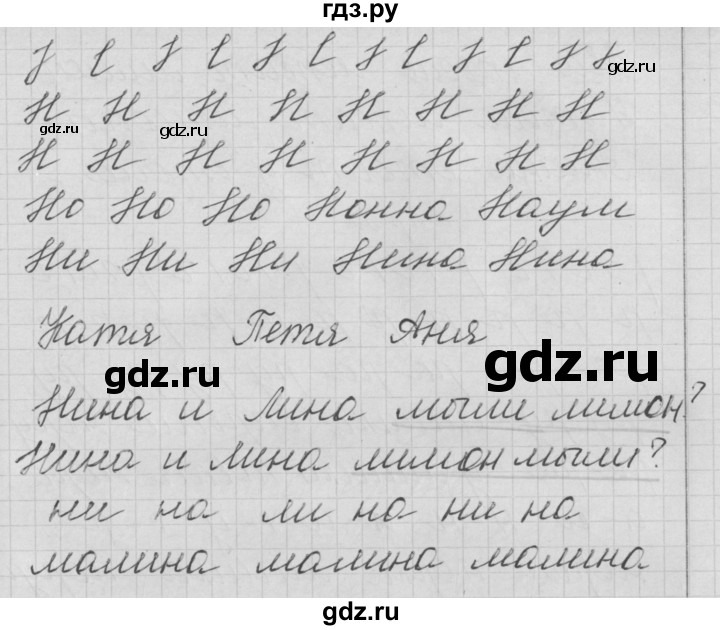 гдз.ру
gdz.ru
Н Н Н Н Н Н Н Н
gdz.ru gdz.ru
Н Н Н Н Н Н Н Н
Но Но Но Нонна Наум
Ни Ни Ни Нина Нина
Катя Петя Аня
gdz.ru
gdz.ru
Нина и Лина мыли лимон?
Нина и Лина лимон мыли?
ни на ли на ни на
малина малина малина
gdz.ru